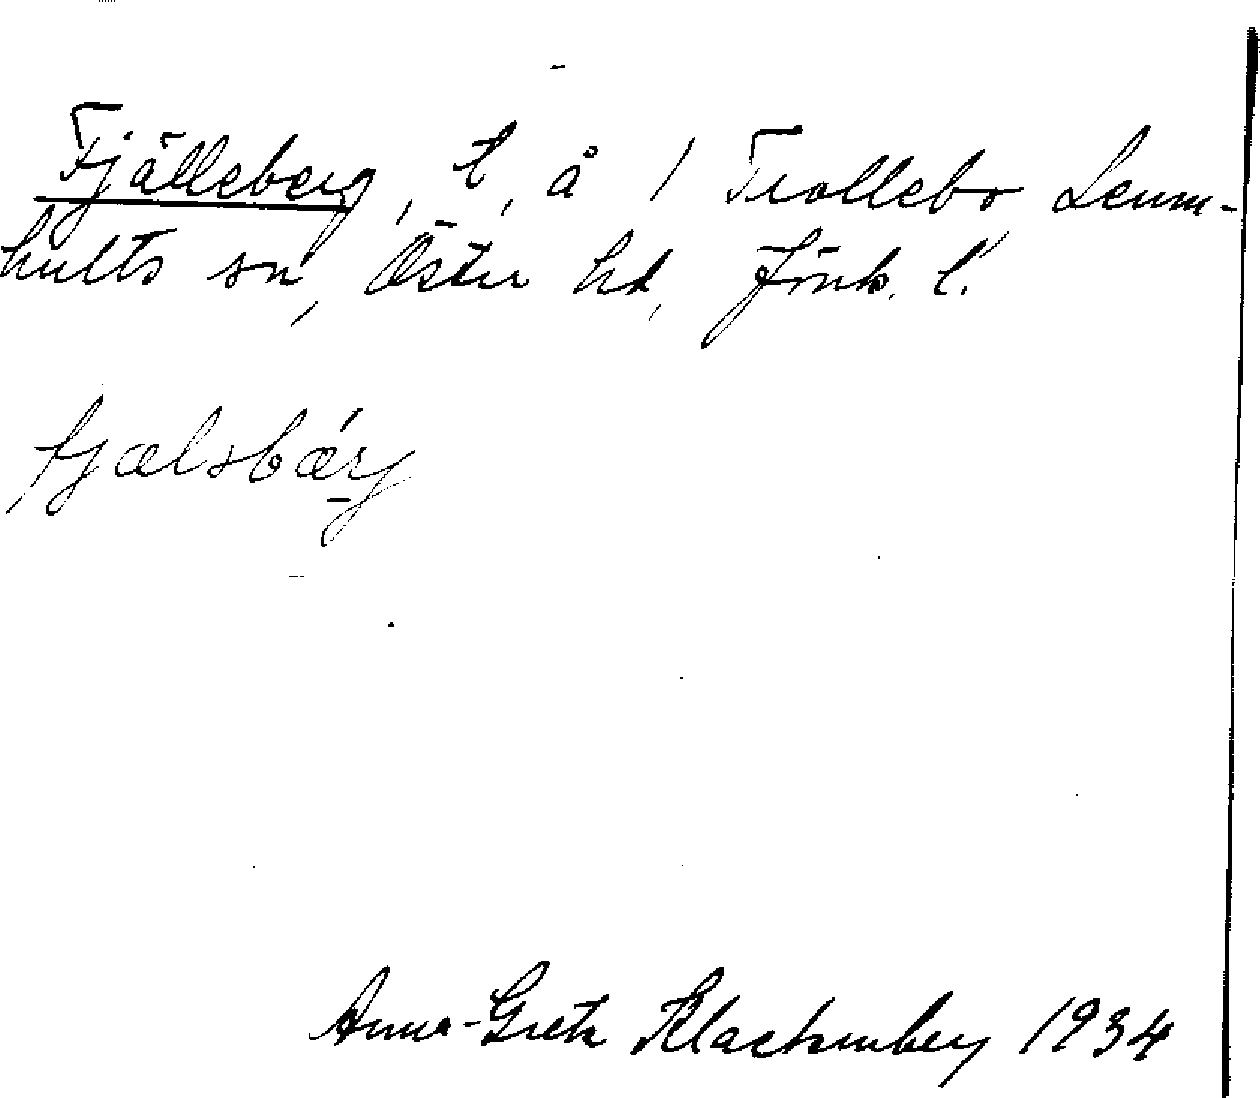 Fjälleberg, t, å 1 Trollebo Lemm-
hults sn, Östra hd, Jönk. l.
fjælsbærj
Anna-Greta Klackenberg 1934